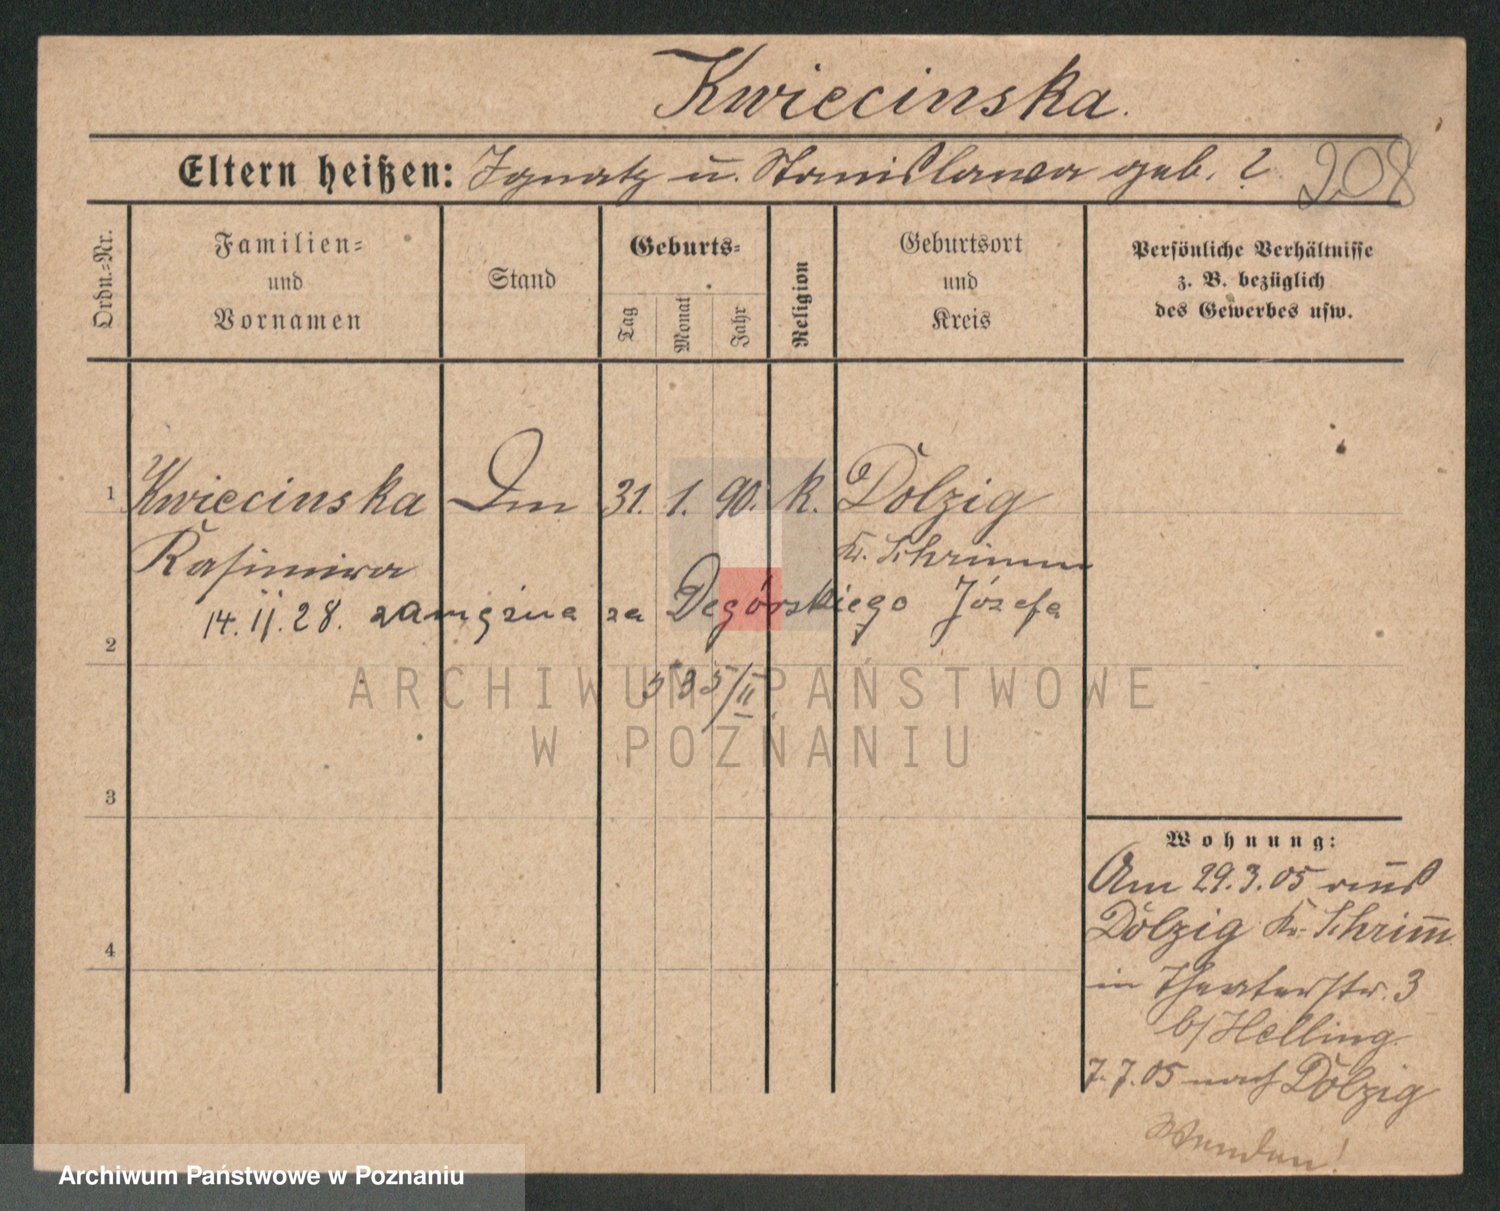 Kwiecinska.
Eltern heißen: Ignatz u. Stanislawa geb. ?
208
Ordn.=Nr.
Familien=
und
Vornamen
Stand
Geburts=
Tag
Monat
Jahr
Religion
Geburtsort
und
Kreis
Persönliche Verhältnisse
z. B. bezüglich
des Gewerbes usw.
1 Kwiecinska 31. 1. 90. k. Dolzig
Kasimira Kr. Schrimm
14. II. 28. zamężna za Degórskiego Józefa
2
535/II
ARCHIWUM PAŃSTWOWE
W POZNANIU
3
Wohnung:
Am 29.3.05 aus
Dolzig Kr. Schrimm
4
in Theaterstr. 3
b/ Helling
7.7.05 nach Dolzig
Wenden!
Archiwum Państwowe w Poznaniu